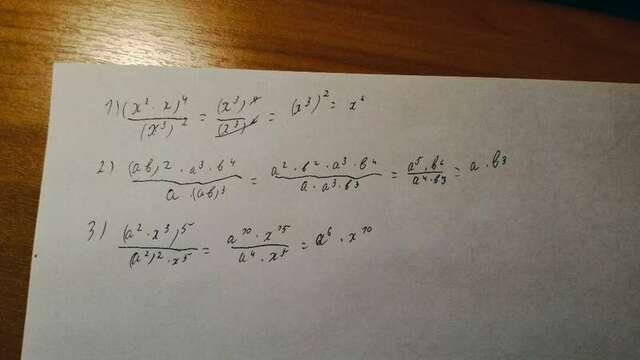 1) (x² · x)⁴ / (x³)² = (x³)⁴ / (x³)² = (x³)² = x⁶
2) (ab)² · a³ · b⁴ / a · (ab)³ = a² · b² · a³ · b⁴ / a · a³ · b³ = a⁵ · b⁶ / a⁴ · b³ = a · b³
3) (a² · x³)⁵ / (a²)² · x⁵ = a¹⁰ · x¹⁵ / a⁴ · x⁵ = a⁶ · x¹⁰